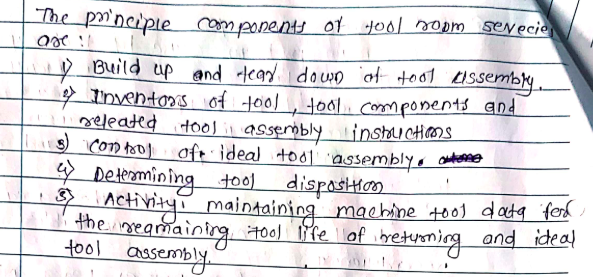 The principle components of tool room servecies
are :
1) Build up and tear down of tool assembly.
2) Inventors of tool, tool components and
releated tool assembly instructions
3) control of ideal tool assembly.
4) Determining tool disposition
5) Activity maintaining machine tool data
the reamaining tool life of returning and ideal
tool assembly.